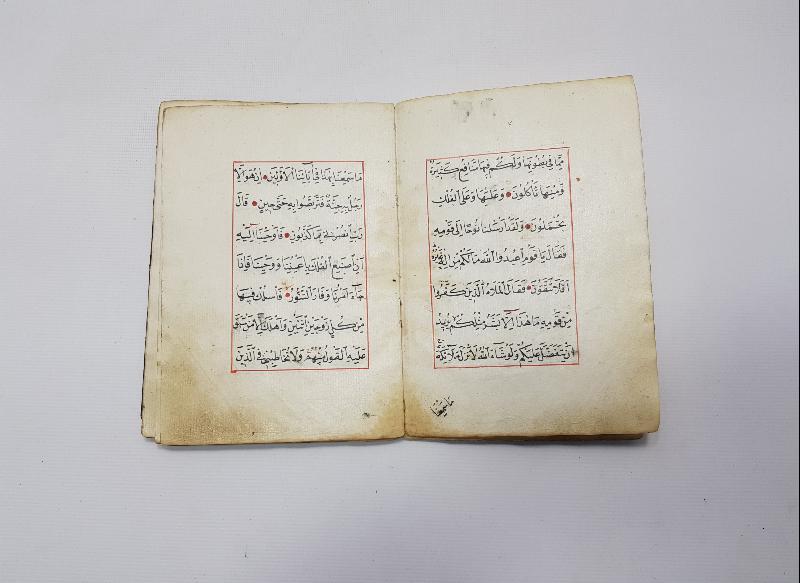 مما في بطونها ولكم فيها منافع كثيرة
ومنها تأكلون وعليها وعلى الفلك
تحملون ولقد ارسلنا نوحا الى قومه
فقال يا قوم اعبدوا الله مالكم من اله غيره
افلا تتقون فقال الملاء الذين كفروا
من قومه ما هذا الا بشر مثلكم يريد
ان يتفضل عليكم ولو شاء الله لانزل ملائكة
ما سمعنا
ما سمعنا بهذا في آبائنا الاولين ان هو الا
رجل به جنة فتربصوا به حتى حين قال
رب انصرني بما كذبون فاوحينا اليه
ان اصنع الفلك باعيننا ووحينا فاذا
جاء امرنا وفار التنور فاسلك فيها
من كل زوجين اثنين واهلك الا من سبق
عليه القول منهم ولا تخاطبني في الذين